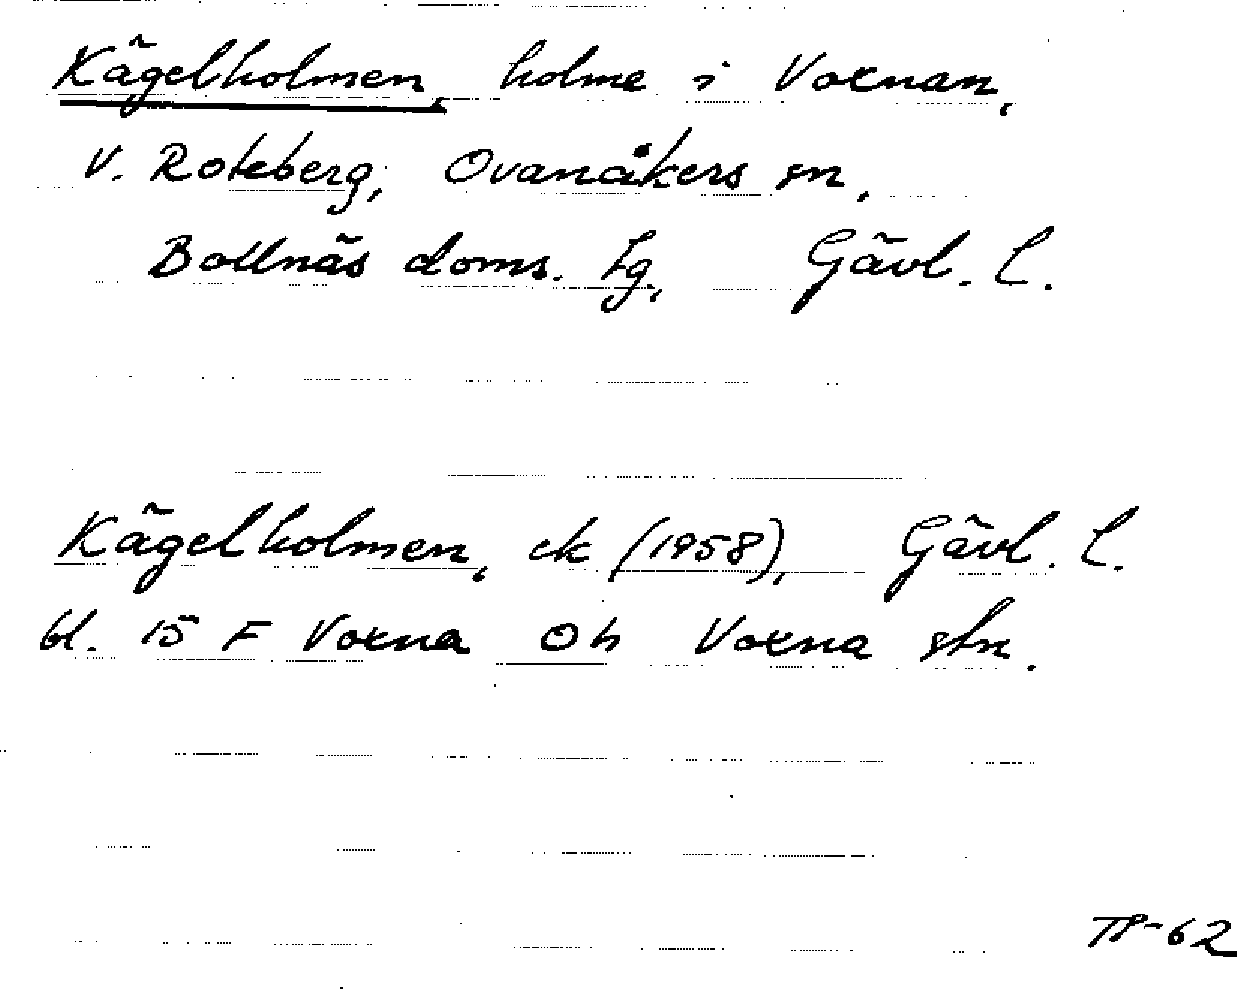 Kägelholmen, holme i Voxnan,
V. Roteberg, Ovanåkers sn,
Bollnäs doms. lg, Gävl. l.
Kägelholmen, ek (1958), Gävl. l.
bl. 15 F Voxna Oh Voxna stn.
TP-62